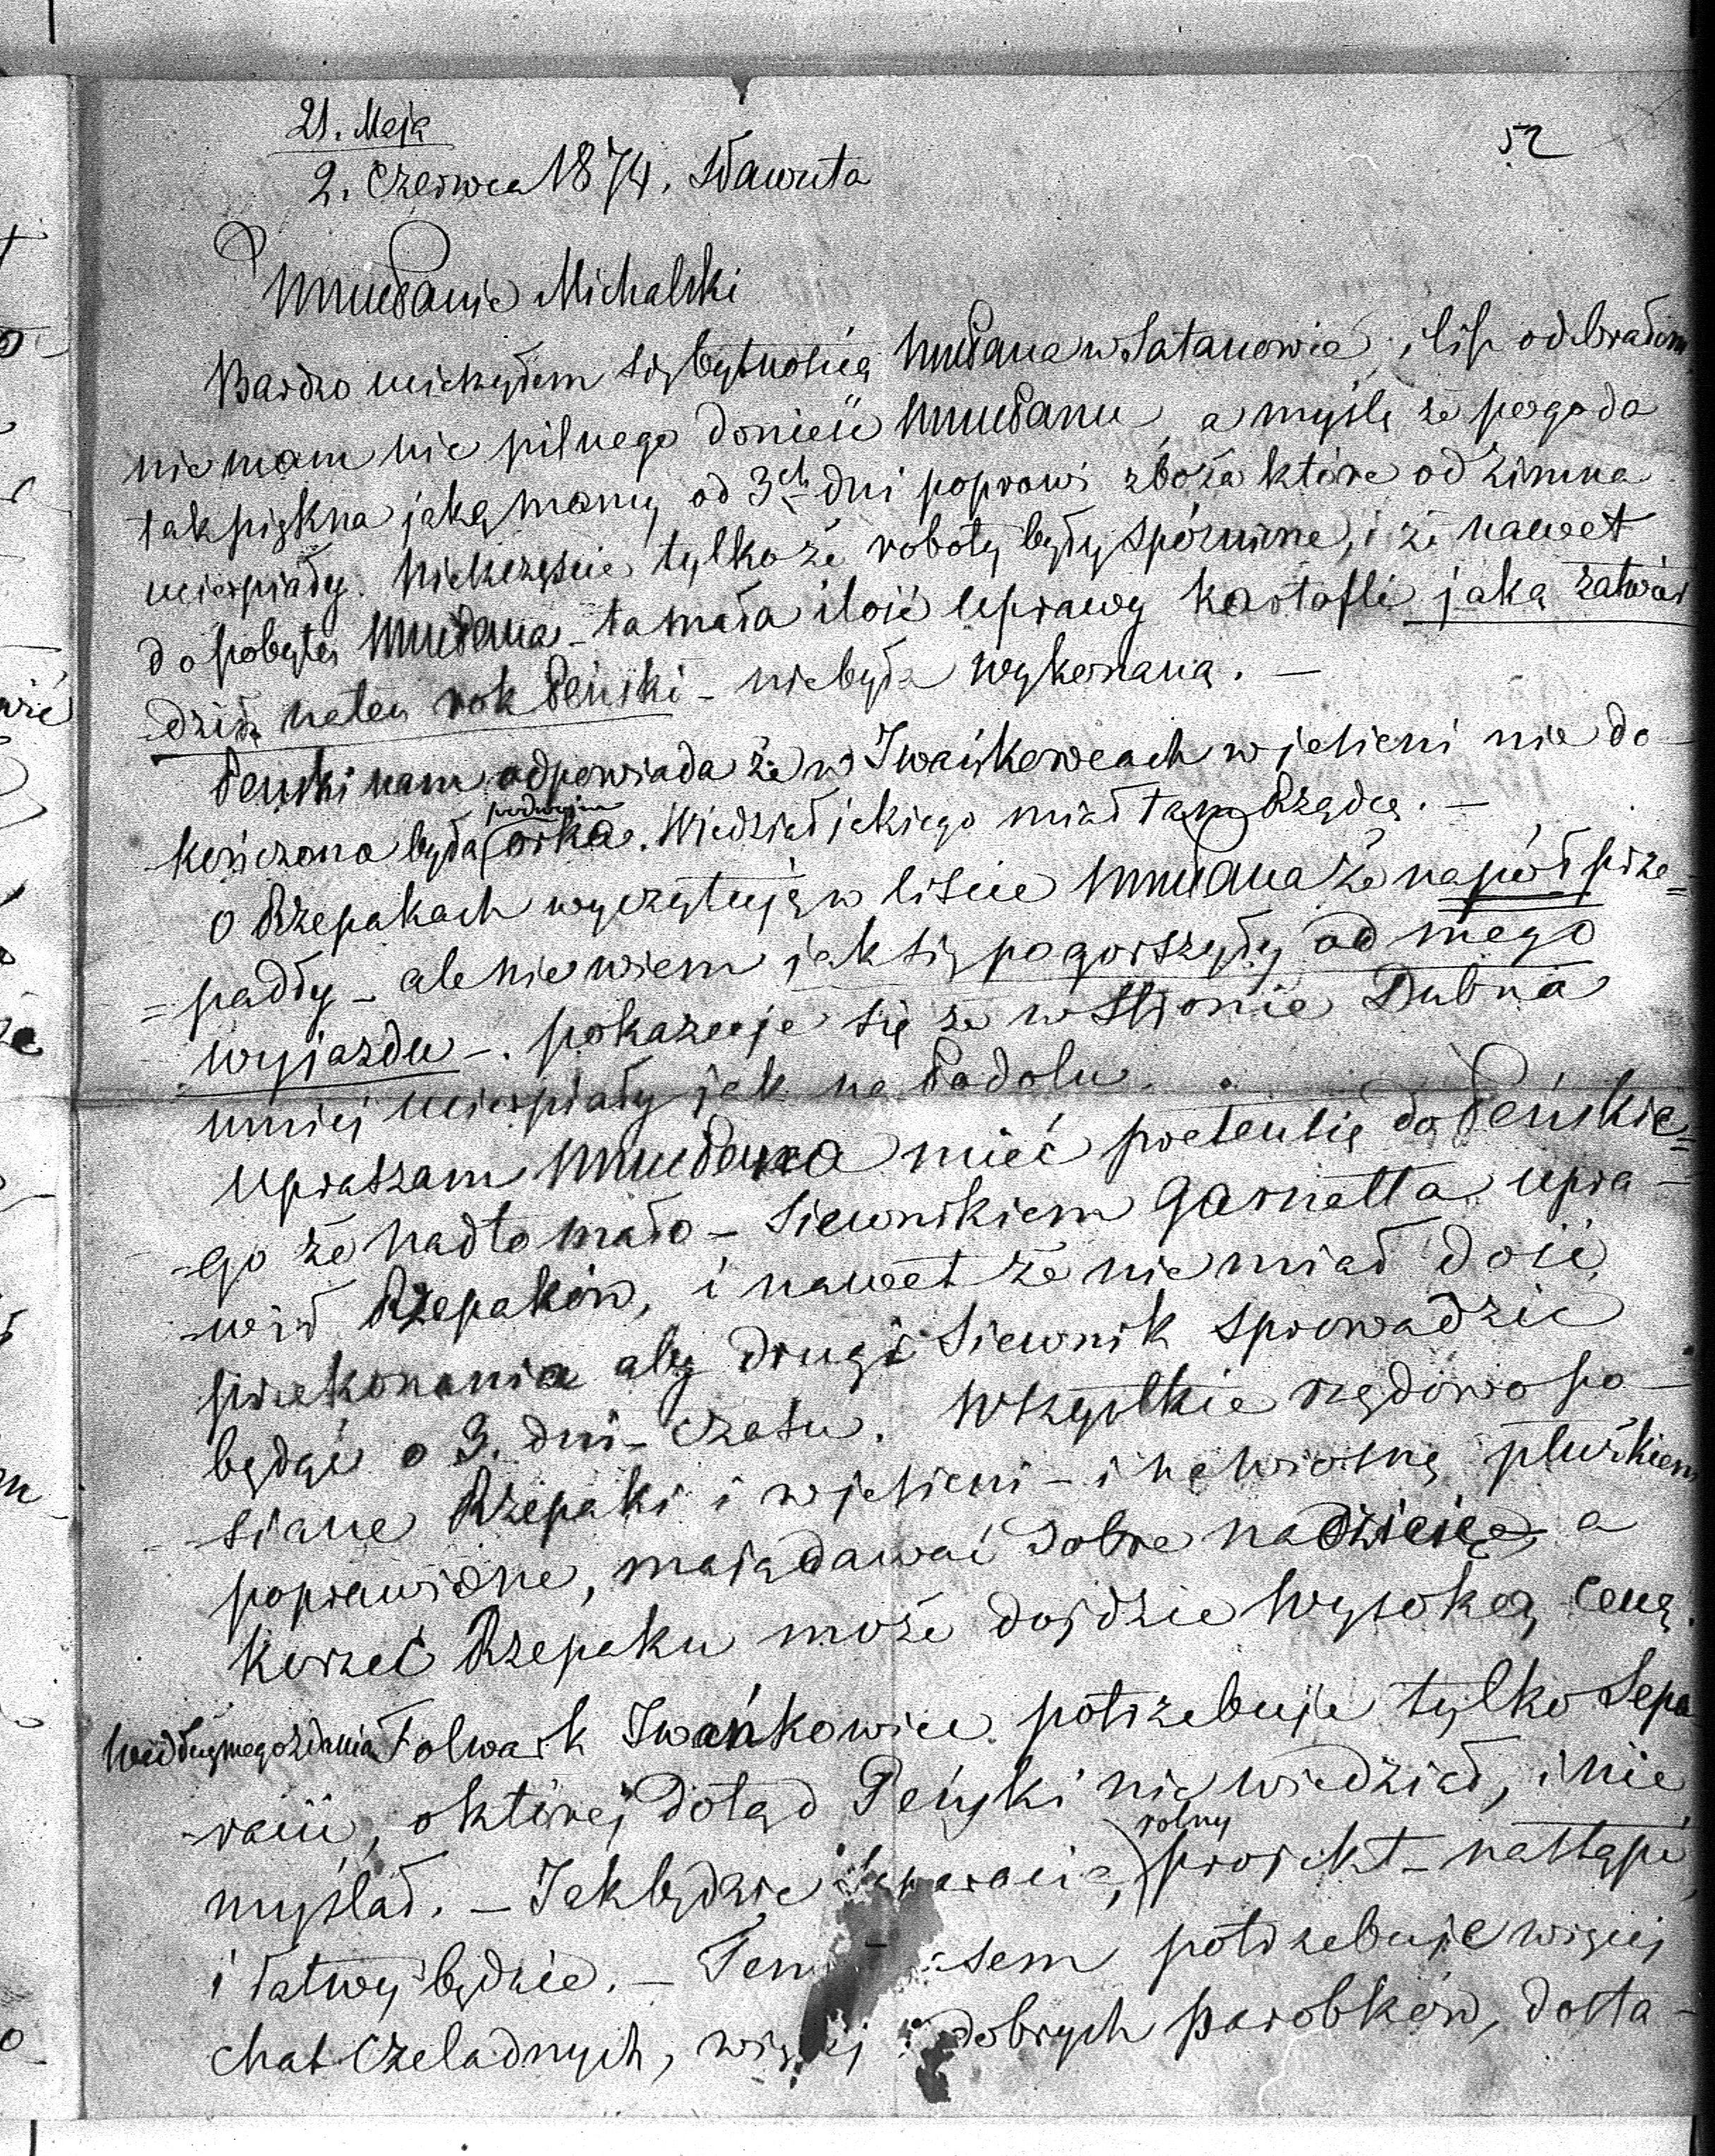 21. Maja
52
2. Czerwca 1874. Sławuta
Michalski
Bardzo ucieszyłem się bytnością w Satanowie, i list odbrałem
nie mam nic pilnego donieść a myślę że pogoda
tak piękna jaką mamy od 3ch dni poprawi zboża które od zimna
ucierpiały. Nieszczęście tylko że roboty były spóźnione, i że nawet
do pobytu ta mała ilość uprawy kartofli jaką zatwier
dził na ten rok Peński – nie była wykonaną. –
Peński nam odpowiada że w Iwańkowcach w jesieni nie do-
kończona była podwójna orka. Wiedział jakiego miał tam Rządcę. –
O Rzepakach wyczytuję w liście że napół prze=
=padły – ale nie wiem jak się pogorszyły od mego
wyjazdu –. pokazuje się że w stronie Dubna
mniej ucierpiały jak na Podolu.
Upraszam mieć pretensię do Peńskie=
-go że nadto mało – Siewnikiem Garnetta upra-
-wił Rzepaków, i nawet że nie miał dość
przekonania aby drugi Siewnik sprowadzić
będąc o 3. dni – czasu. Wszystkie rzędowo po-
-siane Rzepaki i w jesieni – i na wiosnę płużkiem
poprawione, mają dawać dobre nadzieję a
Korzec Rzepaku może dojdzie wysoką cenę.
Według mego zdania Folwark Iwańkowice potrzebuje tylko Sepa
-racii, o której dotąd Peński nie wiedział, i nie
myślał. – Jak będzie Separacia, rolny projekt – nastąpi
i łatwy będzie. – potrzebuje więcej
chat czeladnych, więcej dobrych parobków, dosta-